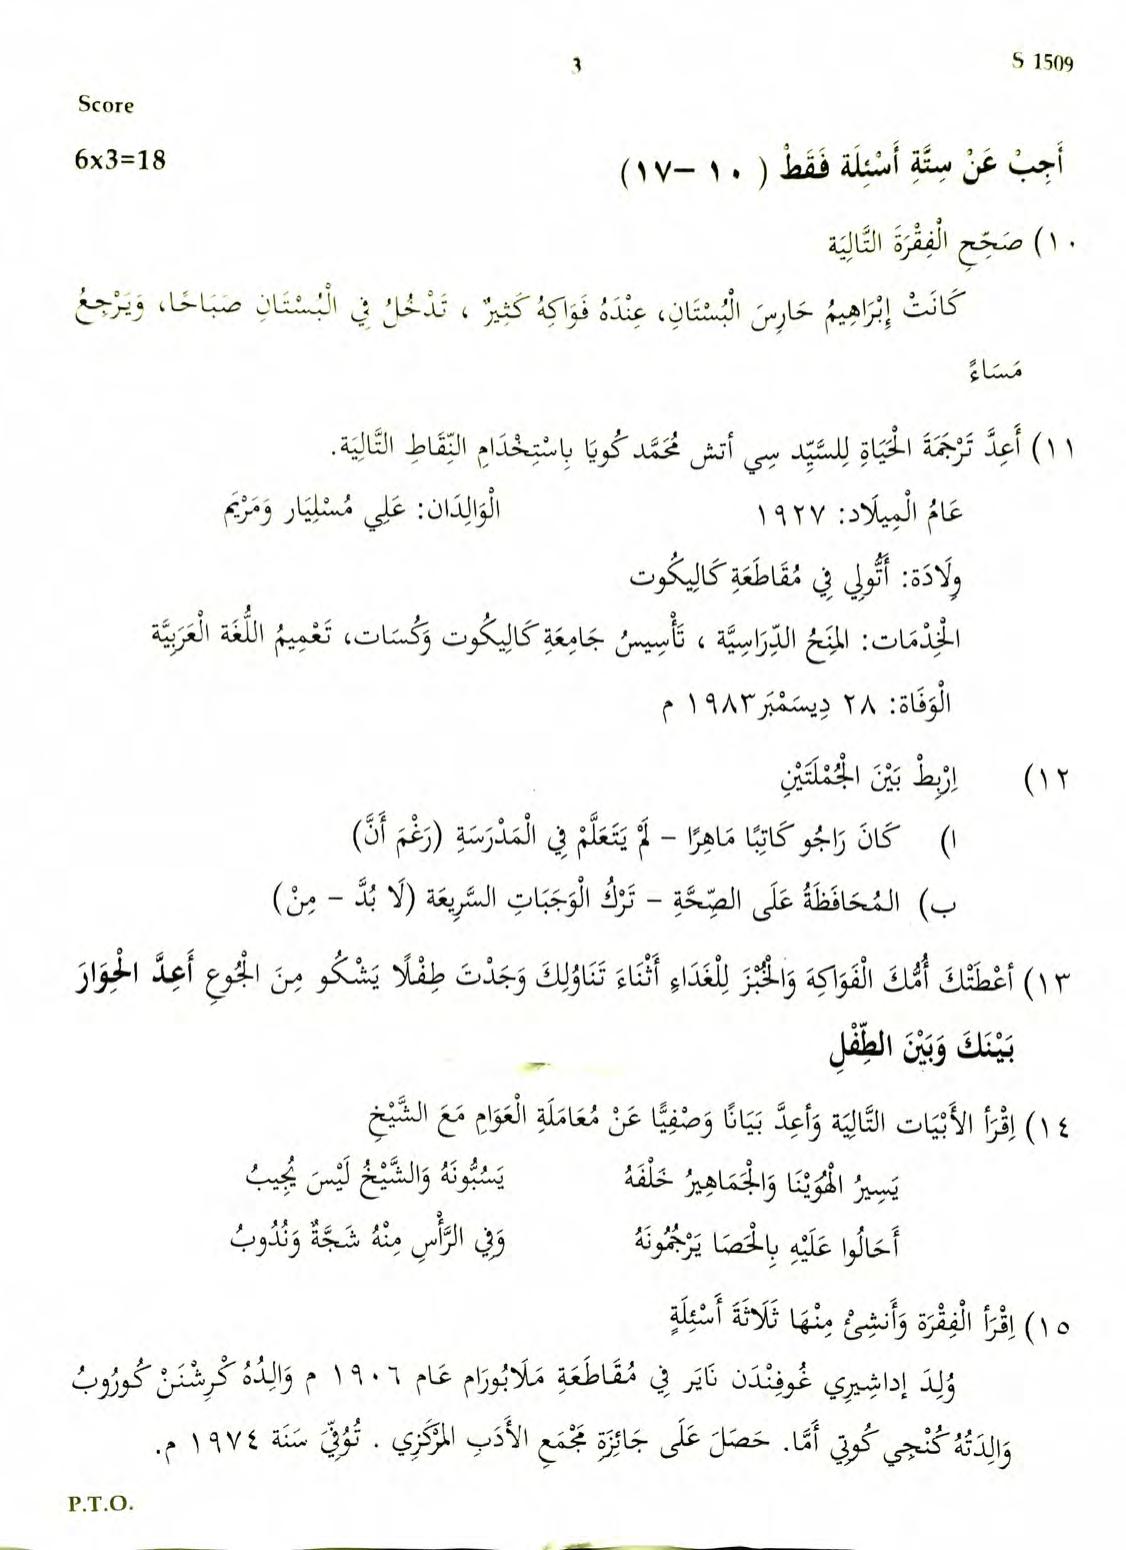 3
S 1509
Score
6x3=18
أَجِبْ عَنْ سِتَّةِ أَسْئِلَة فَقَطْ ( ١٠ –١٧)
١٠) صَحِّحِ الْفِقْرَةَ التَّالِيَة
كَانَتْ إِبْرَاهِيمُ حَارِسَ الْبُسْتَانِ، عِنْدَهُ فَوَاكِهُ كَثِيرٌ ، تَدْخُلُ فِي الْبُسْتَانِ صَبَاحًا، وَيَرْجِعُ
مَسَاءً
١١) أَعِدَّ تَرْجَمَةَ الْحَيَاةِ لِلسَّيِّد سِي أتش مُحَمَّد كُويَا بِاسْتِخْدَامِ النِّقَاطِ التَّالِيَة.
عَامُ الْمِيلَاد: ١٩٢٧ الْوَالِدَان: عَلِي مُسْلِيَار وَمَرْيَم
وِلَادَة: أَتُّولِي فِي مُقَاطَعَةِ كَالِيكُوت
الْخِدْمَات: المِنَحُ الدِّرَاسِيَّة ، تَأْسِيسُ جَامِعَةِ كَالِيكُوت وَكُسَات، تَعْمِيمُ اللُّغَة الْعَرَبِيَّة
الْوَفَاة: ٢٨ دِيسَمْبَر ١٩٨٣ م
١٢) اِرْبِطْ بَيْنَ الْجُمْلَتَيْنِ
ا) كَانَ رَاجُو كَاتِبًا مَاهِرًا – لَمْ يَتَعَلَّمْ فِي الْمَدْرَسَةِ (رَغْمَ أَنَّ)
ب) المُحَافَظَةُ عَلَى الصِّحَّةِ – تَرْكُ الْوَجَبَاتِ السَّرِيعَة (لَا بُدَّ – مِنْ)
١٣) أعْطَتْكَ أُمُّكَ الْفَوَاكِهَ وَالْخُبْزَ لِلْغَدَاءِ أَثْنَاءَ تَنَاوُلِكَ وَجَدْتَ طِفْلًا يَشْكُو مِنَ الْجُوعِ أَعِدَّ الْحِوَارَ
بَيْنَكَ وَبَيْنَ الطِّفْلِ
١٤) اِقْرَأ الأَبْيَات التَّالِيَة وَأَعِدَّ بَيَانًا وَصْفِيًّا عَنْ مُعَامَلَةِ الْعَوَامِ مَعَ الشَّيْخِ
يَسِيرُ الْهُوَيْنَا وَالْجَمَاهِيرُ خَلْفَهُ يَسُبُّونَهُ وَالشَّيْخُ لَيْسَ يُجِيبُ
أَحَالُوا عَلَيْهِ بِالْحَصَا يَرْجُمُونَهُ وَفِي الرَّأْسِ مِنْهُ شَجَّةٌ وَنُدُوبُ
١٥) اِقْرَأ الْفِقْرَة وَأَنشِئْ مِنْهَا ثَلَاثَةَ أَسْئِلَةٍ
وُلِدَ إداشِيرِي غُوفِنْدَن نَايَر فِي مُقَاطَعَةِ مَلَابُورَام عَام ١٩٠٦ م وَالِدُهُ كْرِشْنَنْ كُورُوبُ
وَالِدَتُهُ كُنْجِي كُوتِي أَمَّا. حَصَلَ عَلَى جَائِزَةِ مَجْمَعِ الأَدَبِ المْرْكَزِي . تُوُفِّيَ سَنَة ١٩٧٤ م.
P.T.O.